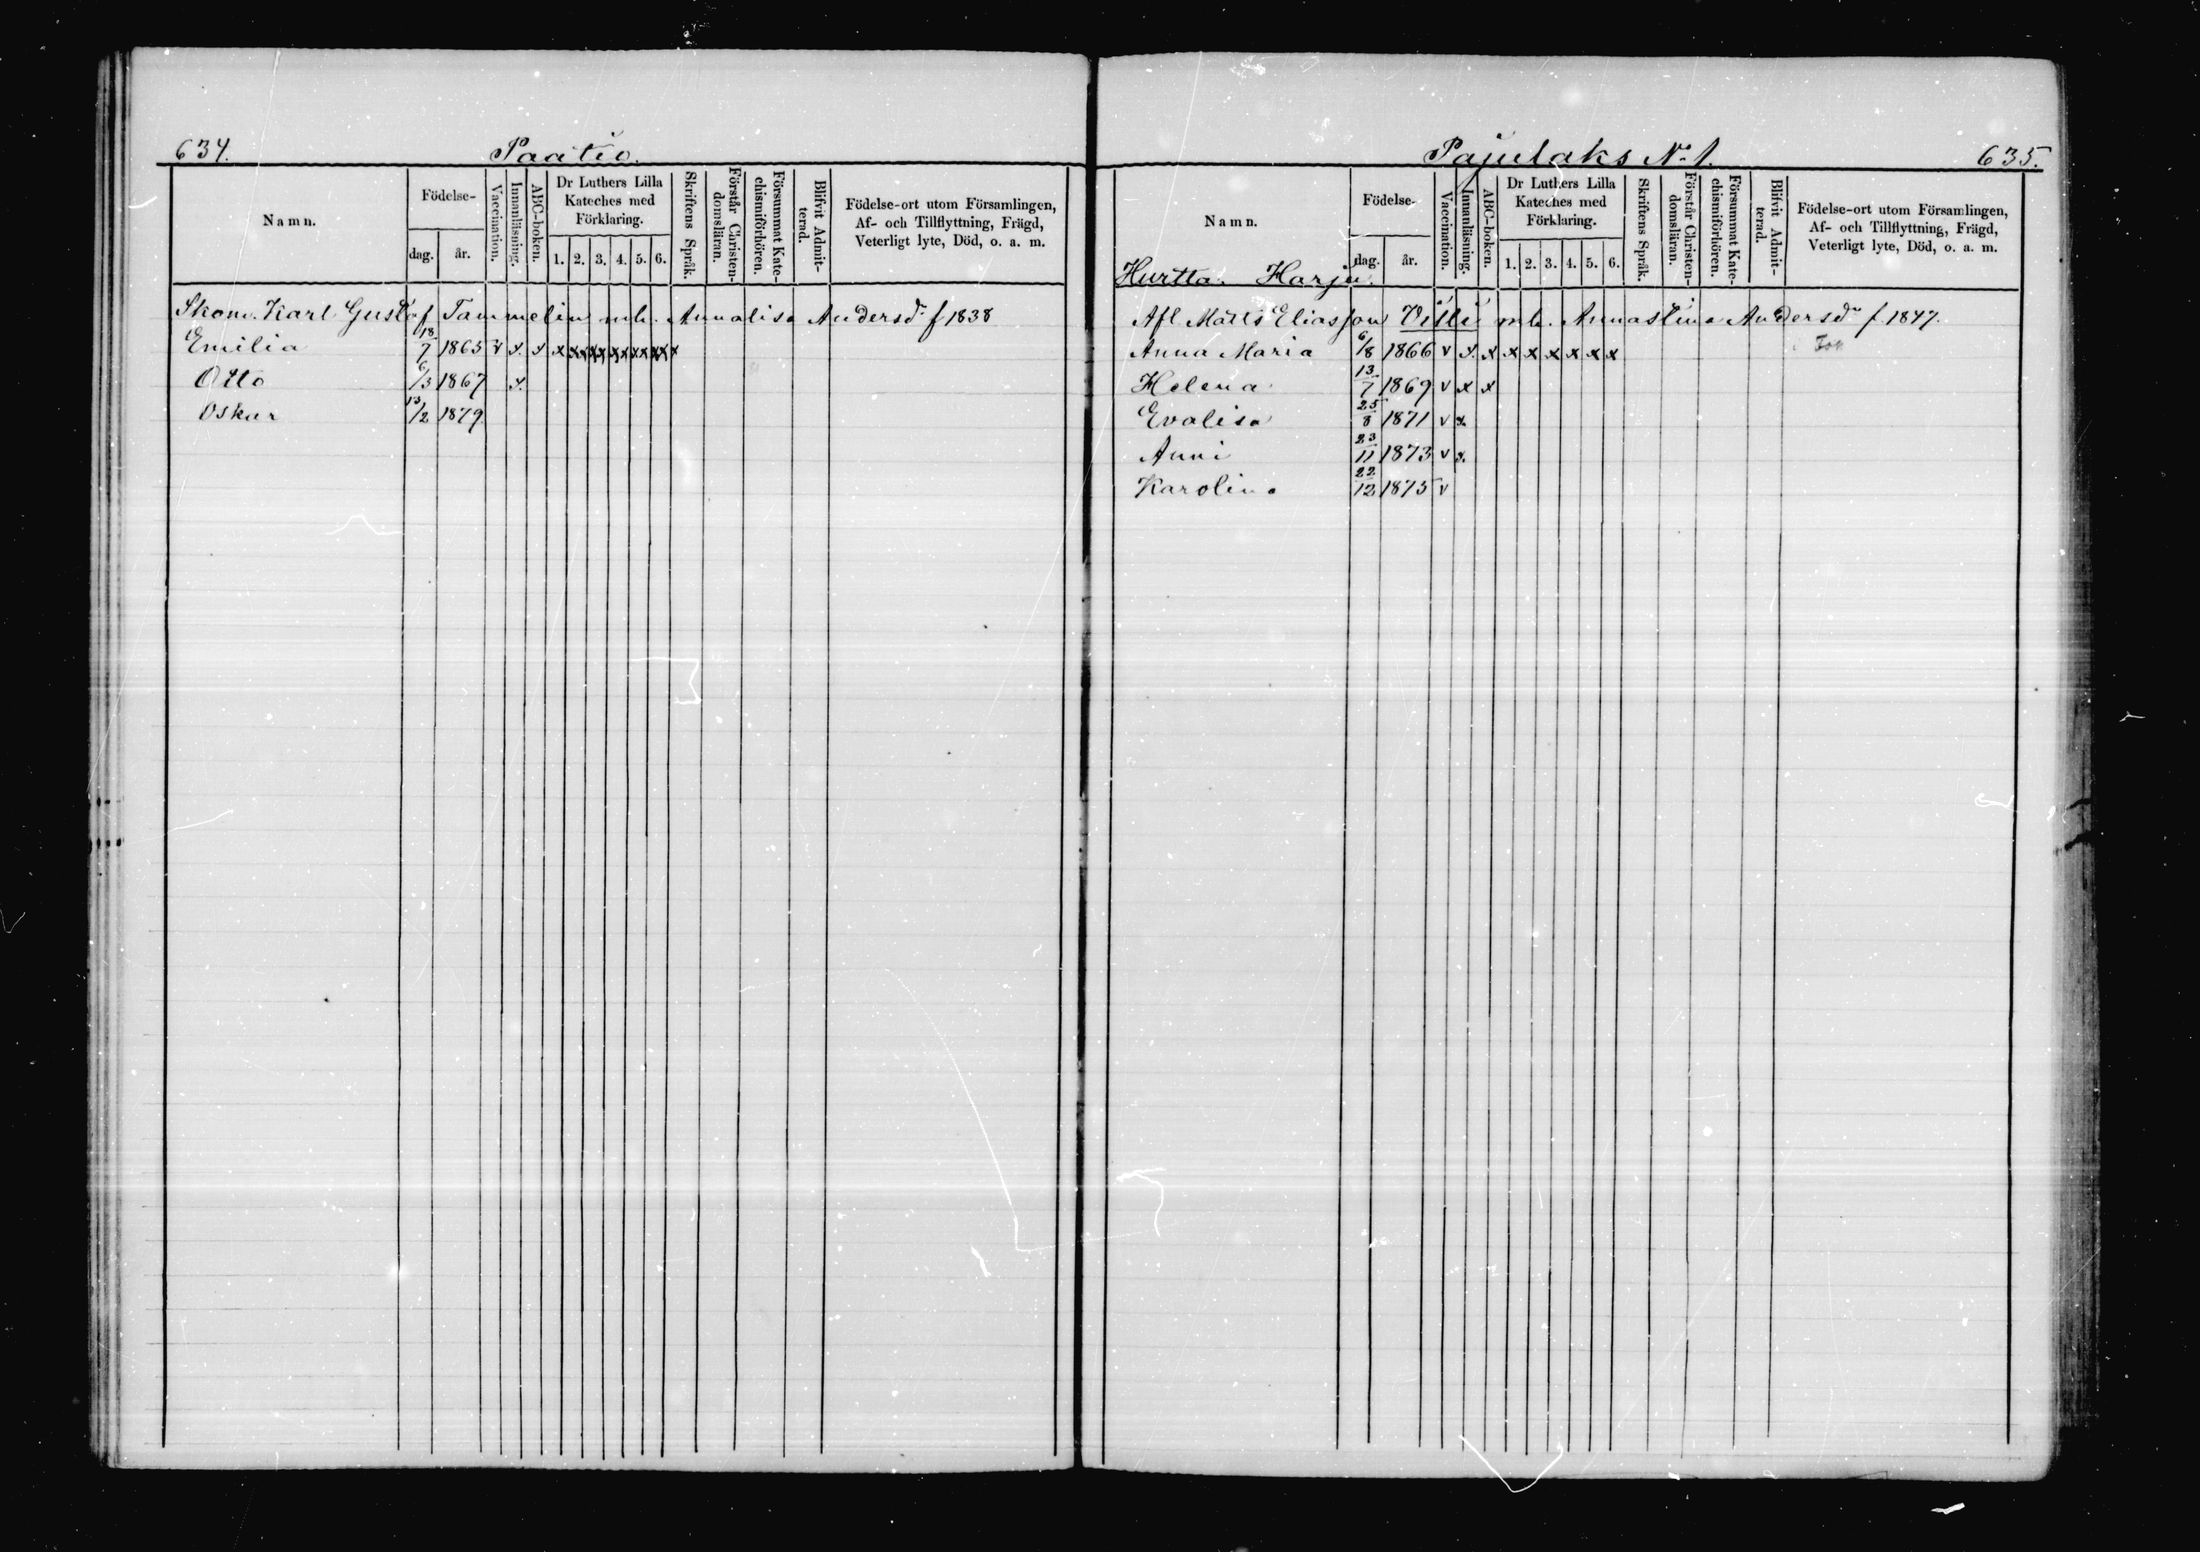 634.
Paatio.
Namn.
Födelse-
dag.
år.
Vaccination.
Innanläsning.
ABC-boken.
Dr Luthers Lilla
Kateches med
Förklaring.
1. 2. 3. 4. 5. 6.
Skriftens Språk.
Förstår Christen-
domsläran.
Försummat Kate-
chismiförhören.
Blifvit Admit-
terad.
Födelse-ort utom Församlingen,
Af- och Tillflyttning, Frägd,
Veterligt lyte, Död, o. a. m.
Skom. Karl Gustaf Tammelin mh. Annalisa Andersdr f 1838
Emilia 18/7 1865 v x x x xx xx xx xx xx x
Otto 6/3 1867 x.
Oskar 13/2 1879.
Pajulaks No 1.
635.
Namn.
Födelse-
dag.
år.
Vaccination.
Innanläsning.
ABC-boken.
Dr Luthers Lilla
Kateches med
Förklaring.
1. 2. 3. 4. 5. 6.
Skriftens Språk.
Förstår Christen-
domsläran.
Försummat Kate-
chismiförhören.
Blifvit Admit-
terad.
Födelse-ort utom Församlingen,
Af- och Tillflyttning, Frägd,
Veterligt lyte, Död, o. a. m.
Hurtta. Harju.
Afl Matts Eliasson mh. Annastina Andersdr f. 1847.
Anna Maria 6/8 1866 v x. x x x x x x x
Helena 13/7 1869 v x x
Evalisa 25/8 1871 v x.
Anni 23/11 1873 v x.
Karolina 22/12 1875 v